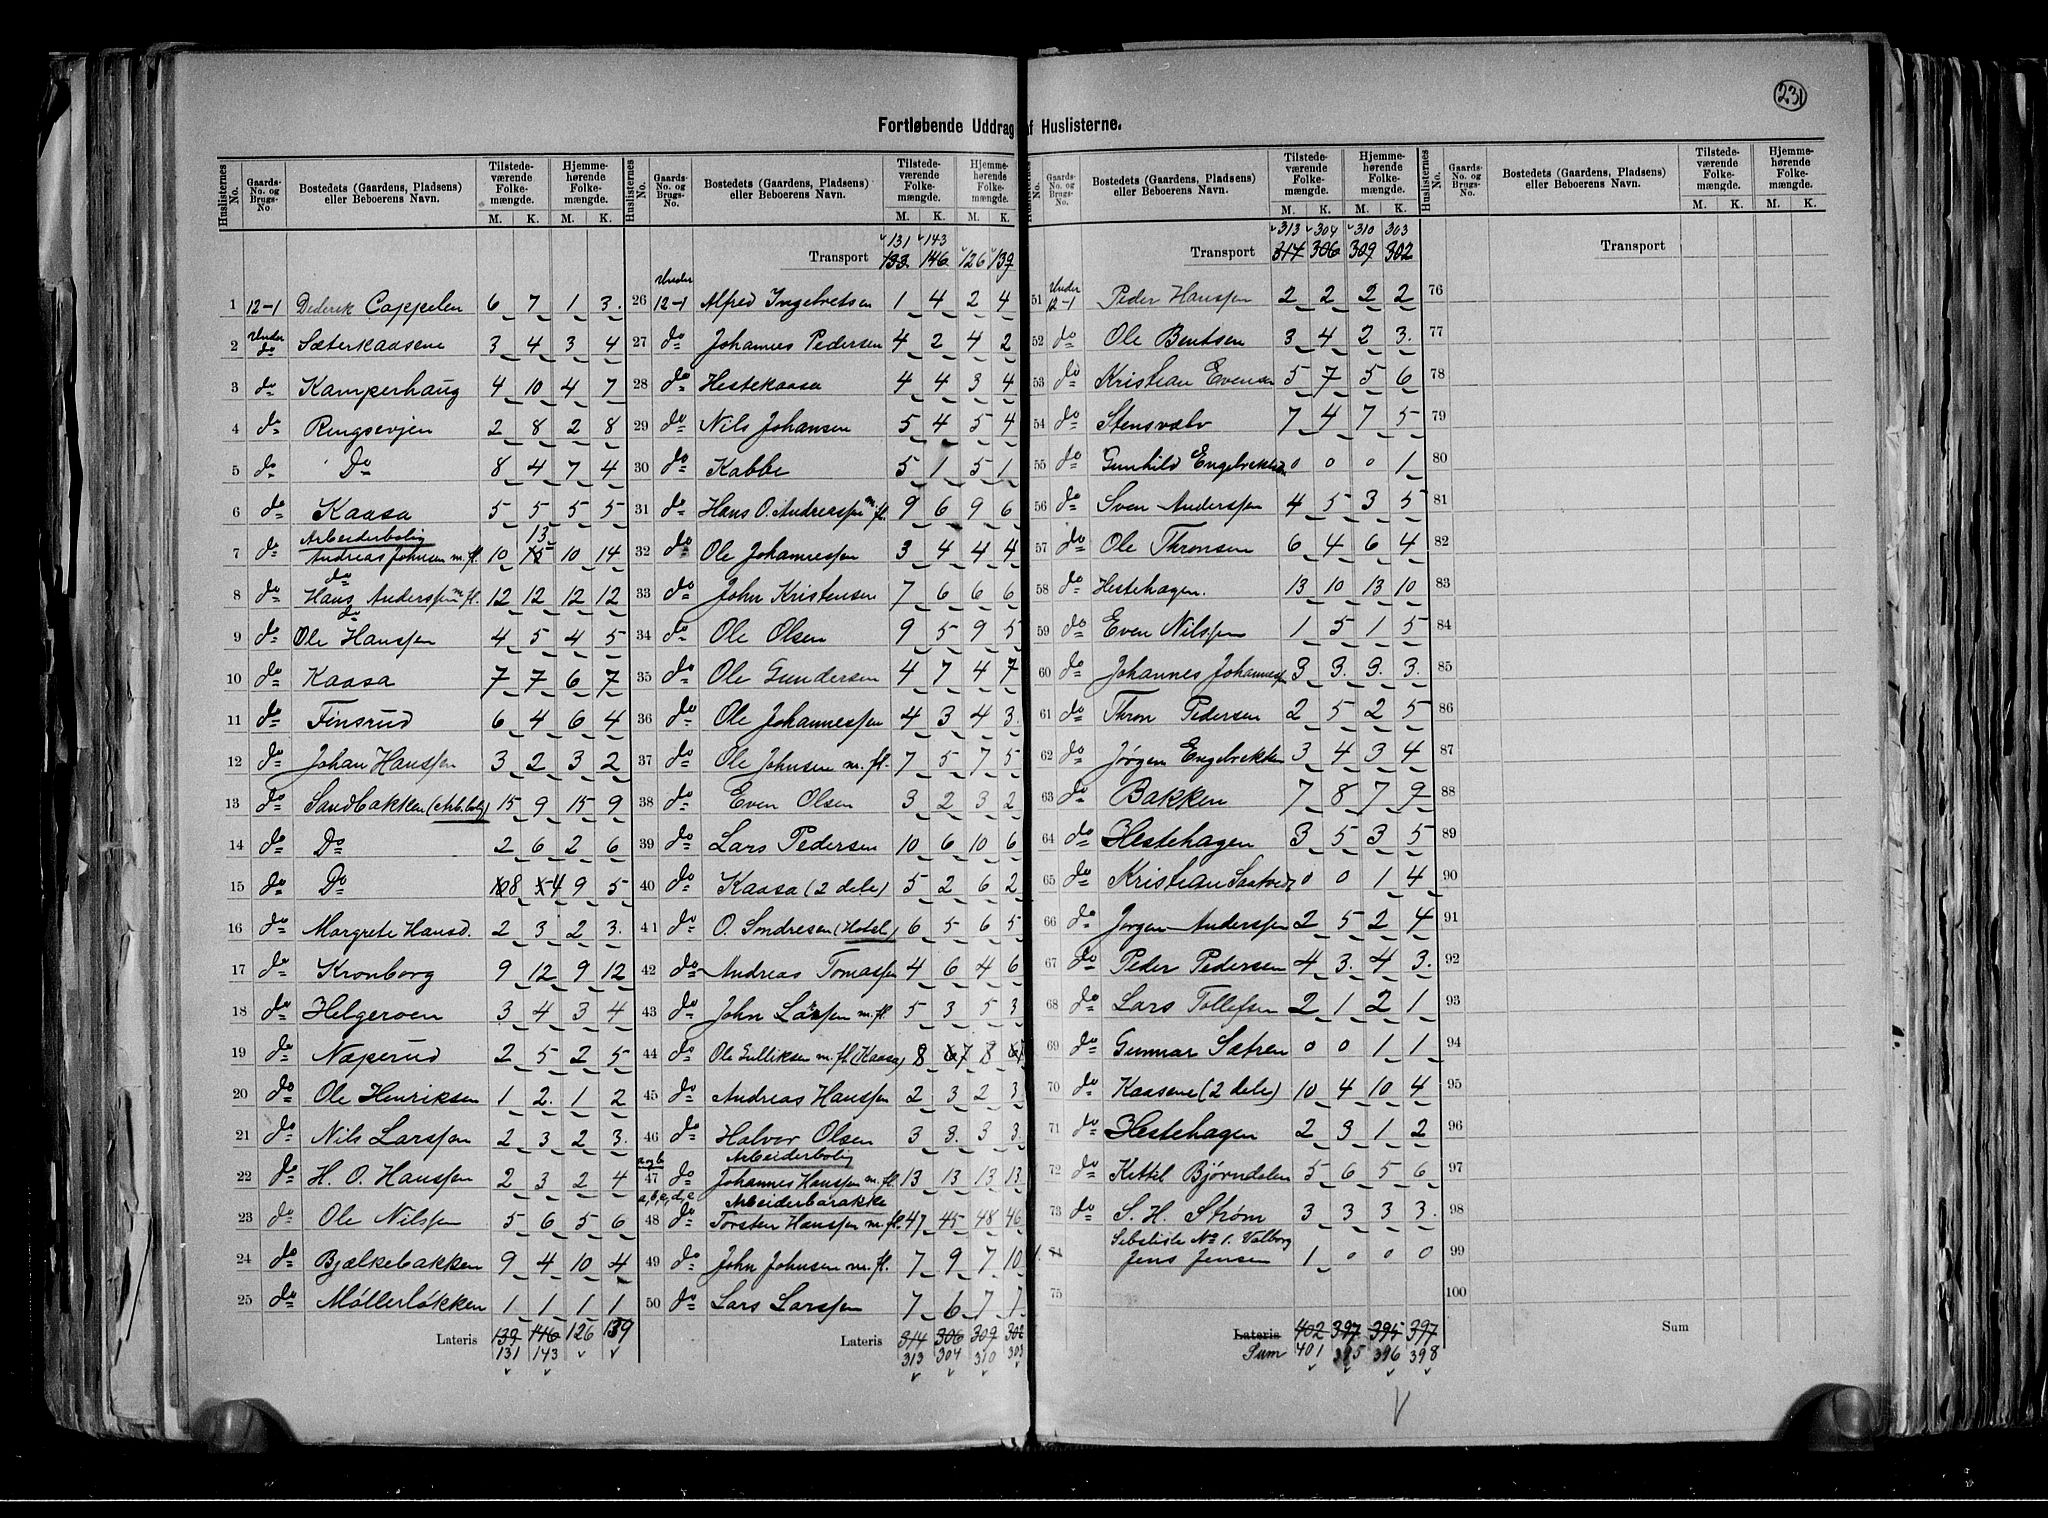 231
Fortløbende Uddrag af Huslisterne.
Huslisternes No. | Gaards-No. og Brugs-No. | Bostedets (Gaardens, Pladsens) eller Beboerens Navn. | Tilstedeværende Folkemængde. M. K. | Hjemmehørende Folkemængde. M. K.
1 12-1 Diderik Cappelen 6 7 1 3
2 Under do Sæterkaasene 3 4 3 4
3 do Kamperhaug 4 10 4 7
4 do Ringsevjen 2 8 2 8
5 do Do 8 4 7 4
6 do Kaasa 5 5 5 5
Arbeiderbolig 13
7 do Andreas Johnsen m. fl. 10 15 10 14
do
8 do Hans Anderssen m. fl. 12 12 12 12
do
9 do Ole Hanssen 4 5 4 5
10 do Kaasa 7 7 6 7
11 do Finsrud 6 4 6 4
12 do Johan Hanssen 3 2 3 2
13 do Sandbakken (Arb.bolig) 15 9 15 9
14 do Do 2 6 2 6
15 do Do 8 4 9 5
16 do Margrete Hansd. 2 3 2 3
17 do Kronborg 9 12 9 12
18 do Helgeroen 3 4 3 4
19 do Næperud 2 5 2 5
20 do Ole Henriksen 1 2 1 2
21 do Nils Larssen 2 3 2 3
22 do H. O. Hanssen 2 3 2 4
23 do Ole Nilssen 5 6 5 6
24 do Bjælkebakken 9 4 10 4
25 do Møllerløkken 1 1 1 1
Lateris 139 146 126 139
131 143
Huslisternes No. | Gaards-No. og Brugs-No. | Bostedets (Gaardens, Pladsens) eller Beboerens Navn. | Tilstedeværende Folkemængde. M. K. | Hjemmehørende Folkemængde. M. K.
131 143
Transport 133 146 126 139
Under
26 12-1 Alfred Ingebretsen 1 4 2 4
27 do Johannes Pedersen 4 2 4 2
28 do Hestekaasa 4 4 3 4
29 do Nils Johansen 5 4 5 4
30 do Kabbe 5 1 5 1
31 do Hans O. Andreassen m. fl. 9 6 9 6
32 do Ole Johannessen 3 4 4 4
33 do John Kristensen 7 6 6 6
34 do Ole Olsen 9 5 9 5
35 do Ole Gundersen 4 7 4 7
36 do Ole Johannessen 4 3 4 3
37 do Ole Johnsen m. fl. 7 5 7 5
38 do Even Olsen 3 2 3 2
39 do Lars Pedersen 10 6 10 6
40 do Kaasa (2 dele) 5 2 6 2
41 do O. Sondresen (Hotel) 6 5 6 5
42 do Andreas Tomassen 4 6 4 6
43 do John Larssen m. fl. 5 3 5 3
44 do Ole Gulliksen m. fl. (Kaasa) 8 7 8 7
45 do Andreas Hanssen 2 3 2 3
46 do Halvor Olsen 3 3 3 3
a og b Arbeiderbolig
47 do Johannes Hanssen m. fl. 13 13 13 13
a, b, c, d, e Arbeiderbarakke
48 do Torsten Hanssen m. fl. 47 45 48 46
49 do John Johnsen m. fl. 7 9 7 10
50 do Lars Larssen 7 6 7 7
Lateris 314 306 309 302
313 304 310 303
Huslisternes No. | Gaards-No. og Brugs-No. | Bostedets (Gaardens, Pladsens) eller Beboerens Navn. | Tilstedeværende Folkemængde. M. K. | Hjemmehørende Folkemængde. M. K.
313 304 310 303
Transport 314 306 309 302
Under
51 12-1 Peder Hanssen 2 2 2 2
52 do Ole Bentsen 3 4 2 3
53 do Kristian Evensen 5 7 5 6
54 do Stensvælv 7 4 7 5
55 do Gunhild Engebrektsen 0 0 0 1
56 do Sven Anderssen 4 5 3 5
57 do Ole Thronsen 6 4 6 4
58 do Hestehagen. 13 10 13 10
59 do Even Nilssen 1 5 1 5
60 do Johannes Johannessn 3 3 3 3
61 do Thron Pedersen 2 5 2 5
62 do Jørgen Engebrektsen 3 4 3 4
63 do Bakken 7 8 7 9
64 do Hestehagen 3 5 3 5
65 do Kristian Saatvedt 0 0 1 4
66 do Jørgen Anderssen 2 5 2 4
67 do Peder Pedersen 4 3 4 3
68 do Lars Tollefsen 2 1 2 1
69 do Gunnar Sætren 0 0 1 1
70 do Kaasene (2 dele) 10 4 10 4
71 do Hestehagen 2 3 1 2
72 do Kittil Bjørndalen 5 6 5 6
73 do S. H. Strøm 3 3 3 3
Sebeliste No 1. Valborg
Jens Jensen 1 0 0 0
75
Lateris 402 397 395 397
Sum 401 395 396 398
Huslisternes No. | Gaards-No. og Brugs-No. | Bostedets (Gaardens, Pladsens) eller Beboerens Navn. | Tilstedeværende Folkemængde. M. K. | Hjemmehørende Folkemængde. M. K.
Transport
76
77
78
79
80
81
82
83
84
85
86
87
88
89
90
91
92
93
94
95
96
97
98
99
100
Sum